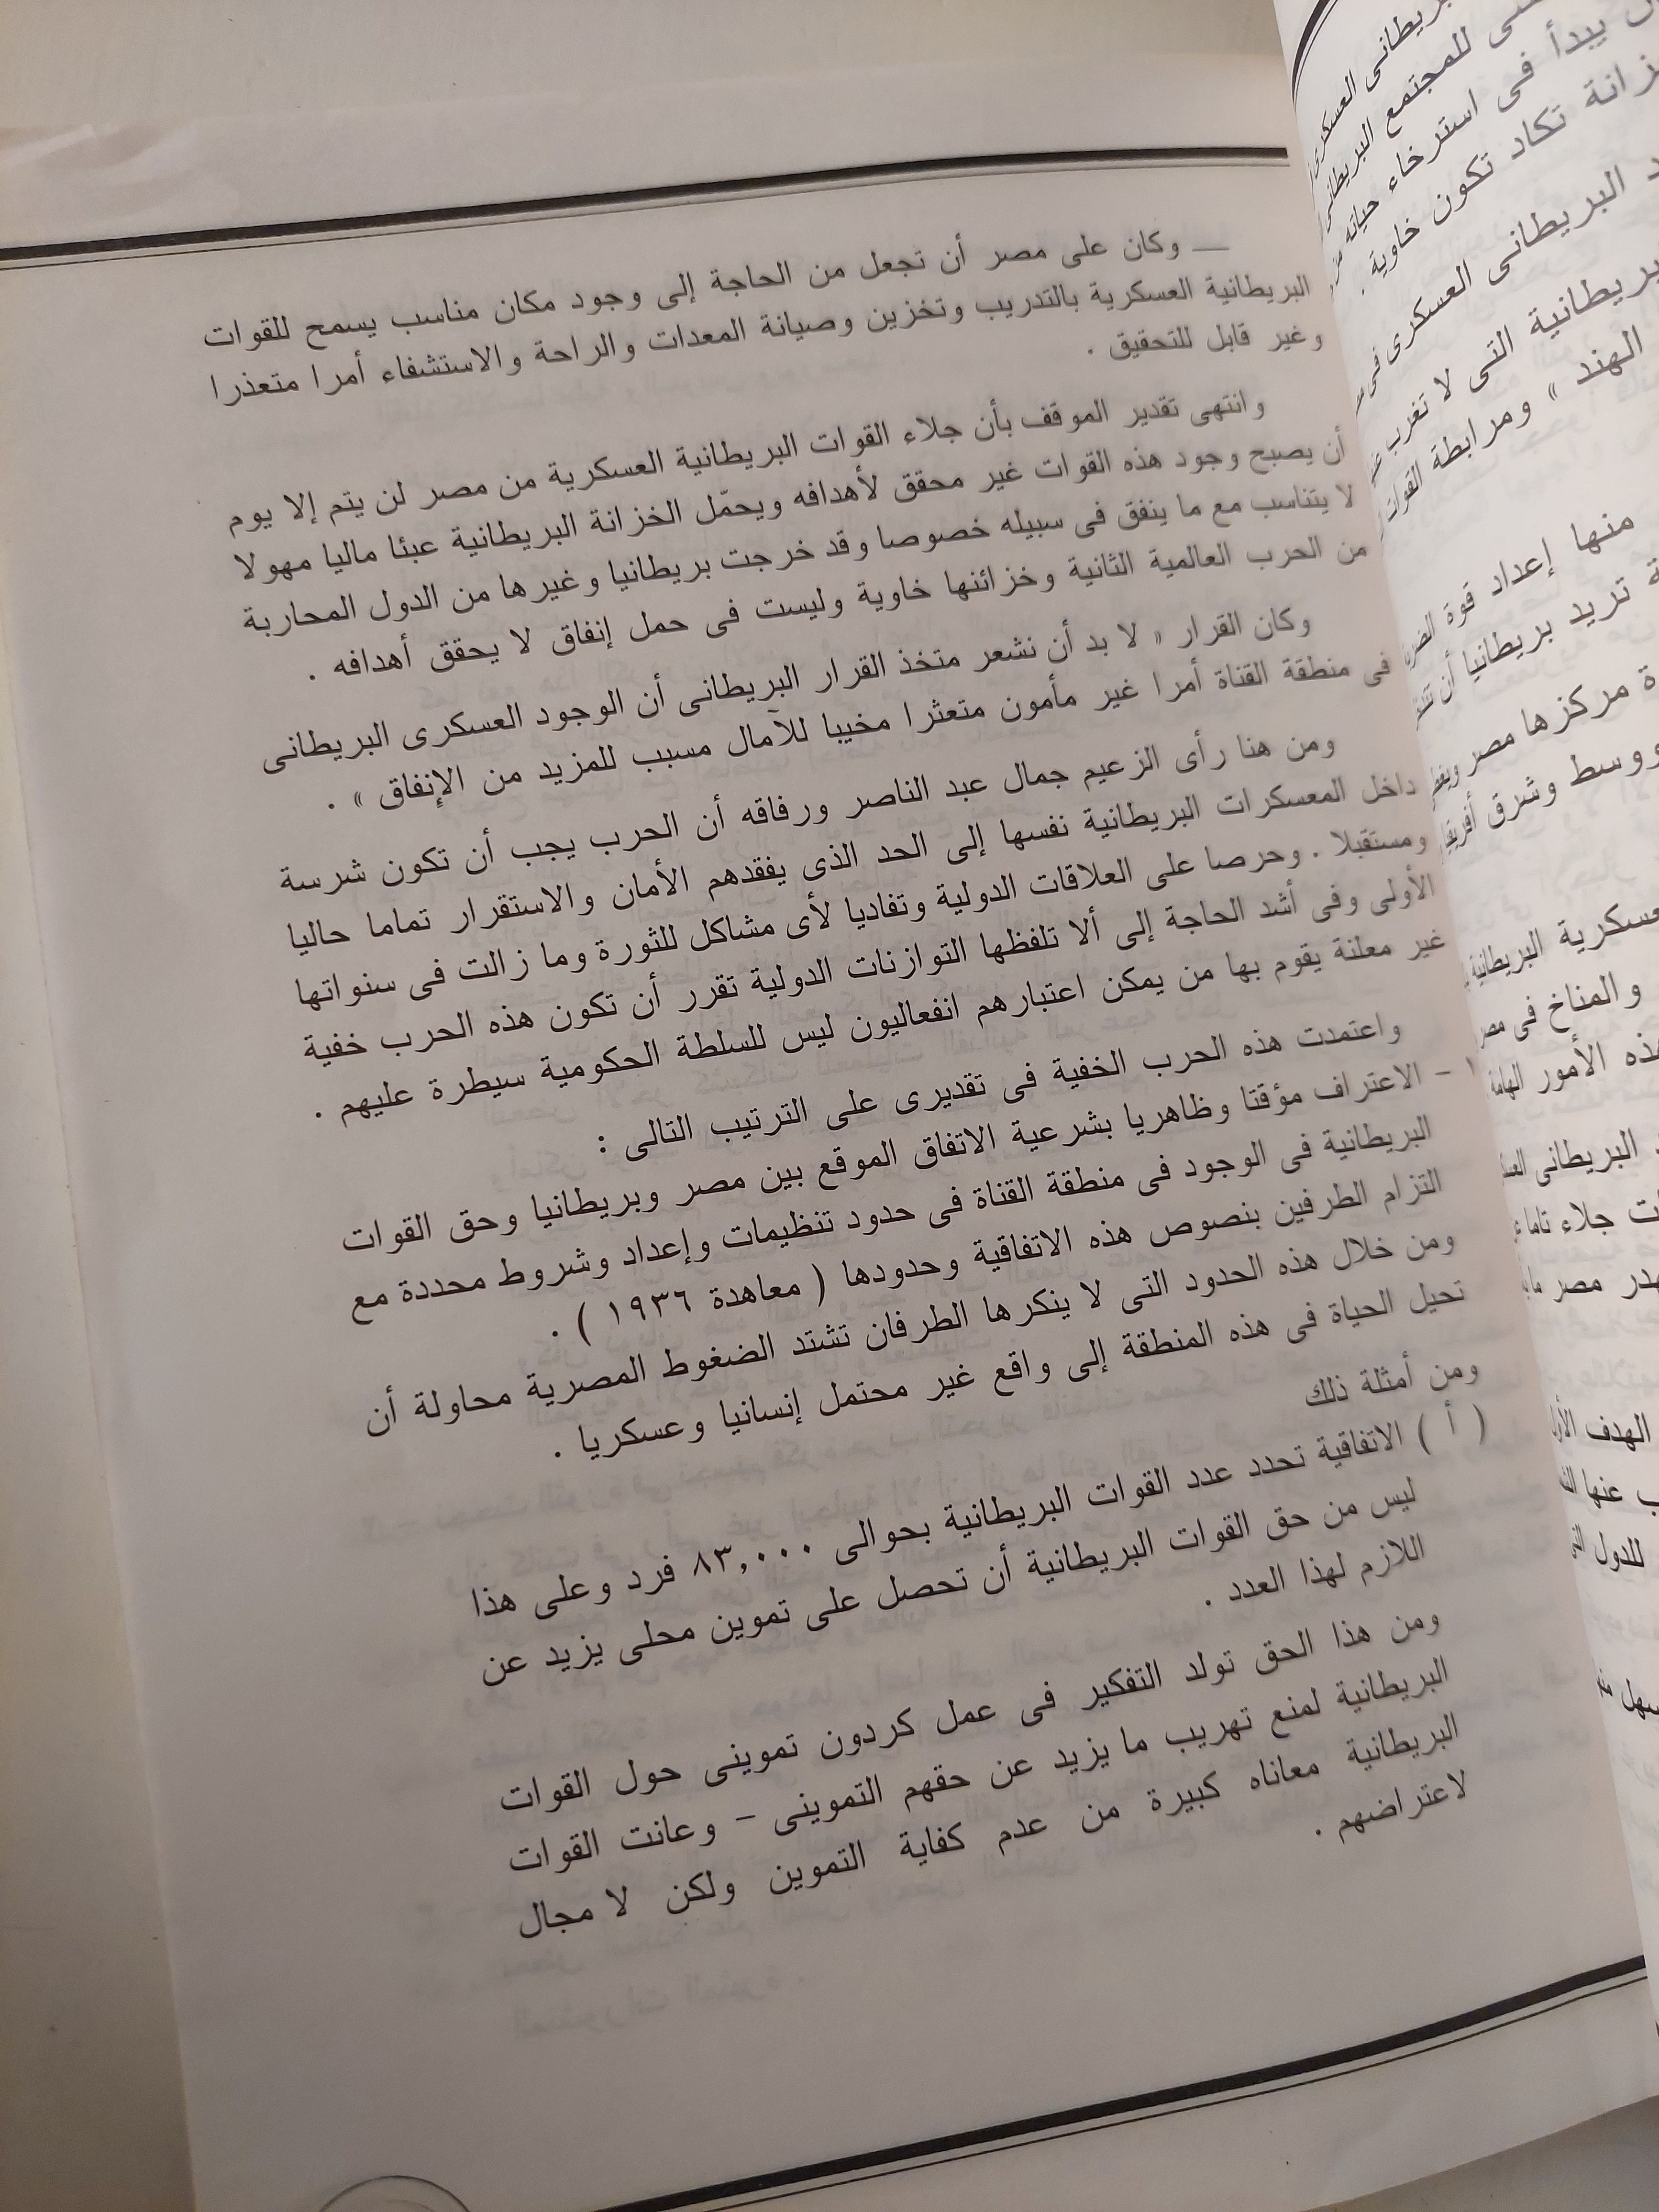 — وكان على مصر أن تجعل من الحاجة إلى وجود مكان مناسب يسمح للقوات
البريطانية العسكرية بالتدريب وتخزين وصيانة المعدات والراحة والاستشفاء أمرا متعذرا
وغير قابل للتحقيق .
وانتهى تقدير الموقف بأن جلاء القوات البريطانية العسكرية من مصر لن يتم إلا يوم
أن يصبح وجود هذه القوات غير محقق لأهدافه ويحمّل الخزانة البريطانية عبئا ماليا مهولا
لا يتناسب مع ما ينفق فى سبيله خصوصا وقد خرجت بريطانيا وغيرها من الدول المحاربة
من الحرب العالمية الثانية وخزائنها خاوية وليست فى حمل إنفاق لا يحقق أهدافه .
وكان القرار « لا بد أن نشعر متخذ القرار البريطانى أن الوجود العسكرى البريطانى
فى منطقة القناة أمرا غير مأمون متعثرا مخيبا للآمال مسبب للمزيد من الإنفاق » .
ومن هنا رأى الزعيم جمال عبد الناصر ورفاقه أن الحرب يجب أن تكون شرسة
داخل المعسكرات البريطانية نفسها إلى الحد الذى يفقدهم الأمان والاستقرار تماما حاليا
ومستقبلا . وحرصا على العلاقات الدولية وتفاديا لأى مشاكل للثورة وما زالت فى سنواتها
الأولى وفى أشد الحاجة إلى ألا تلفظها التوازنات الدولية تقرر أن تكون هذه الحرب خفية
غير معلنة يقوم بها من يمكن اعتبارهم انفعاليون ليس للسلطة الحكومية سيطرة عليهم .
واعتمدت هذه الحرب الخفية فى تقديرى على الترتيب التالى :
١ – الاعتراف مؤقتا وظاهريا بشرعية الاتفاق الموقع بين مصر وبريطانيا وحق القوات
البريطانية فى الوجود فى منطقة القناة فى حدود تنظيمات وإعداد وشروط محددة مع
التزام الطرفين بنصوص هذه الاتفاقية وحدودها ( معاهدة ١٩٣٦ ) .
ومن خلال هذه الحدود التى لا ينكرها الطرفان تشتد الضغوط المصرية محاولة أن
تحيل الحياة فى هذه المنطقة إلى واقع غير محتمل إنسانيا وعسكريا .
ومن أمثلة ذلك
( أ ) الاتفاقية تحدد عدد القوات البريطانية بحوالى ٨٣,٠٠٠ فرد وعلى هذا
ليس من حق القوات البريطانية أن تحصل على تموين محلى يزيد عن
اللازم لهذا العدد .
ومن هذا الحق تولد التفكير فى عمل كردون تموينى حول القوات
البريطانية لمنع تهريب ما يزيد عن حقهم التموينى – وعانت القوات
البريطانية معاناه كبيرة من عدم كفاية التموين ولكن لا مجال
لاعتراضهم .
بريطانى
للمجتمع البريطانى
يبدأ فى استرخاء حياته
تكاد تكون خاوية .
البريطانى العسكرى فى
بريطانية التى لا تغرب
الهند » ومرابطة القوات
منها إعداد قوة
تريد بريطانيا أن
مركزها مصر
ووسط وشرق
عسكرية البريطانية
والمناخ فى مصر
هذه الأمور الهامة
البريطانى
جلاء تاما
مصر
الهدف
عنها
للدول